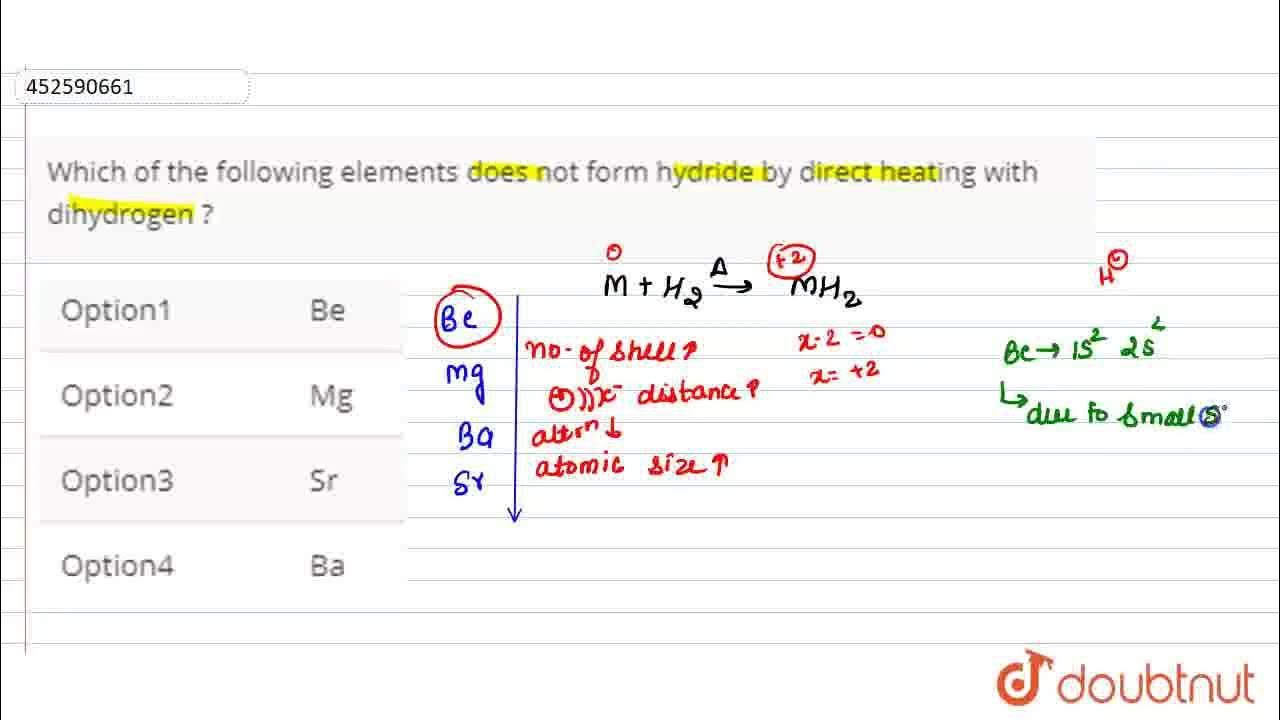 452590661
Which of the following elements does not form hydride by direct heating with
dihydrogen ?
Option1 Be
Option2 Mg
Option3 Sr
Option4 Ba
Be
Mg
Ba
Sr
no. of shell ↑
distance ↑
attrⁿ ↓
atomic size ↑
0 +2
M + H₂ Δ→ MH₂
x-2 = 0
x = +2
H⊖
Be → 1S² 2S²
due to small s
doubtnut